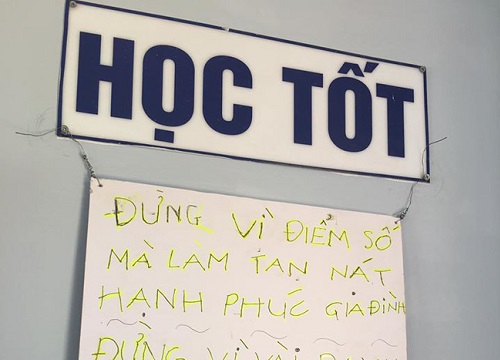 HỌC TỐT
ĐỪNG VÌ ĐIỂM SỐ
MÀ LÀM TAN NÁT
HẠNH PHÚC GIA ĐÌNH
ĐỪNG VÌ VÀI